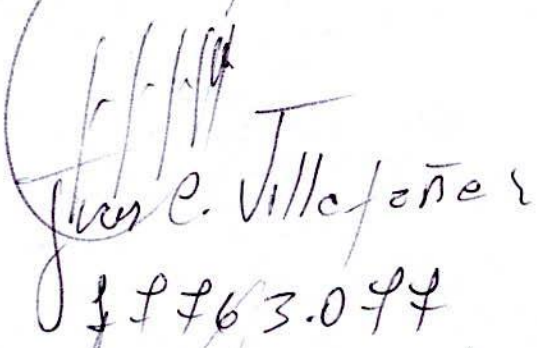 Juan C. Villafañez
17763.077